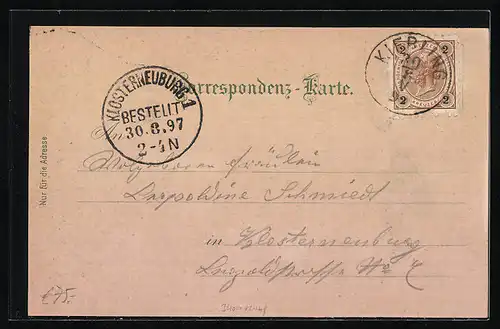 Correspondenz-Karte.
KIERLING
30
2 2
2 2
KLOSTERNEUBURG 1
BESTELLT
30.8.97
2-4N
An
Wolgeboren Fräulein
Leopoldine Schmiedt
in Klosterneuburg
Leopoldstrasse No 7
Nur für die Adresse
€75.-